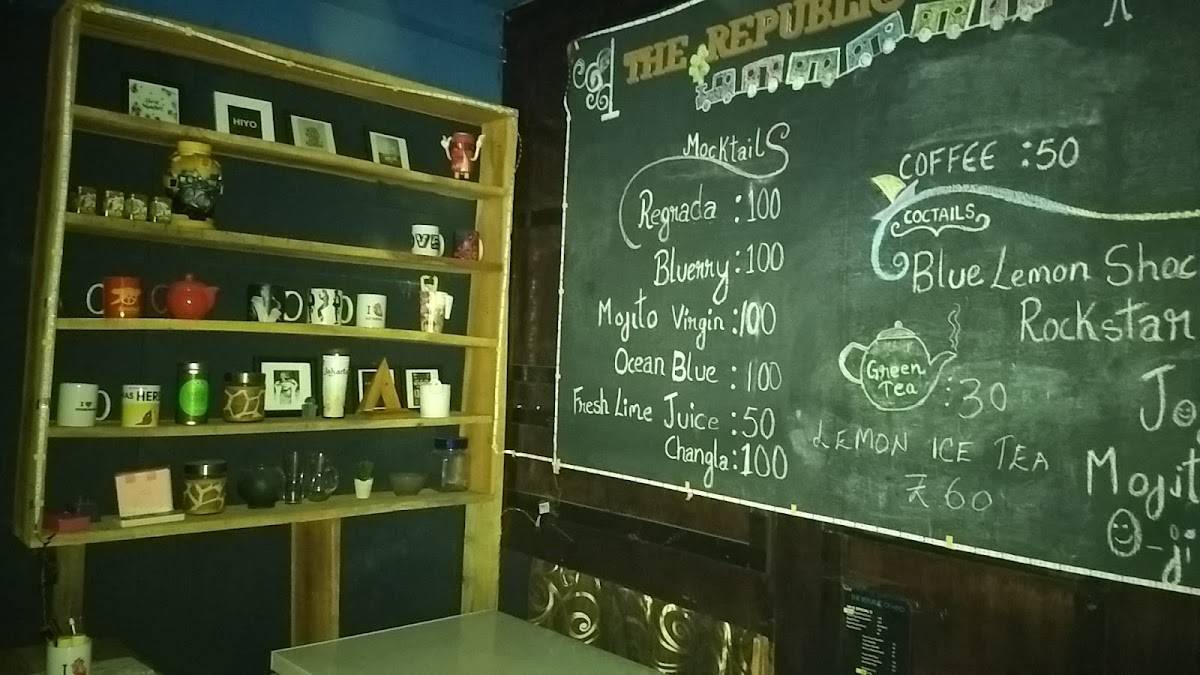 THE REPUBLIC
Mocktails
Regrada : 100
Bluerry : 100
Mojito Virgin : 100
Ocean Blue : 100
Fresh Lime Juice : 50
Changla : 100
COFFEE : 50
COCTAILS
Blue Lemon Shoc
Rockstar
Jo
Mojit
O-ji
Green
Tea
: 30
LEMON ICE TEA
₹ 60
HIYO
Jakarta
HERE
I
A